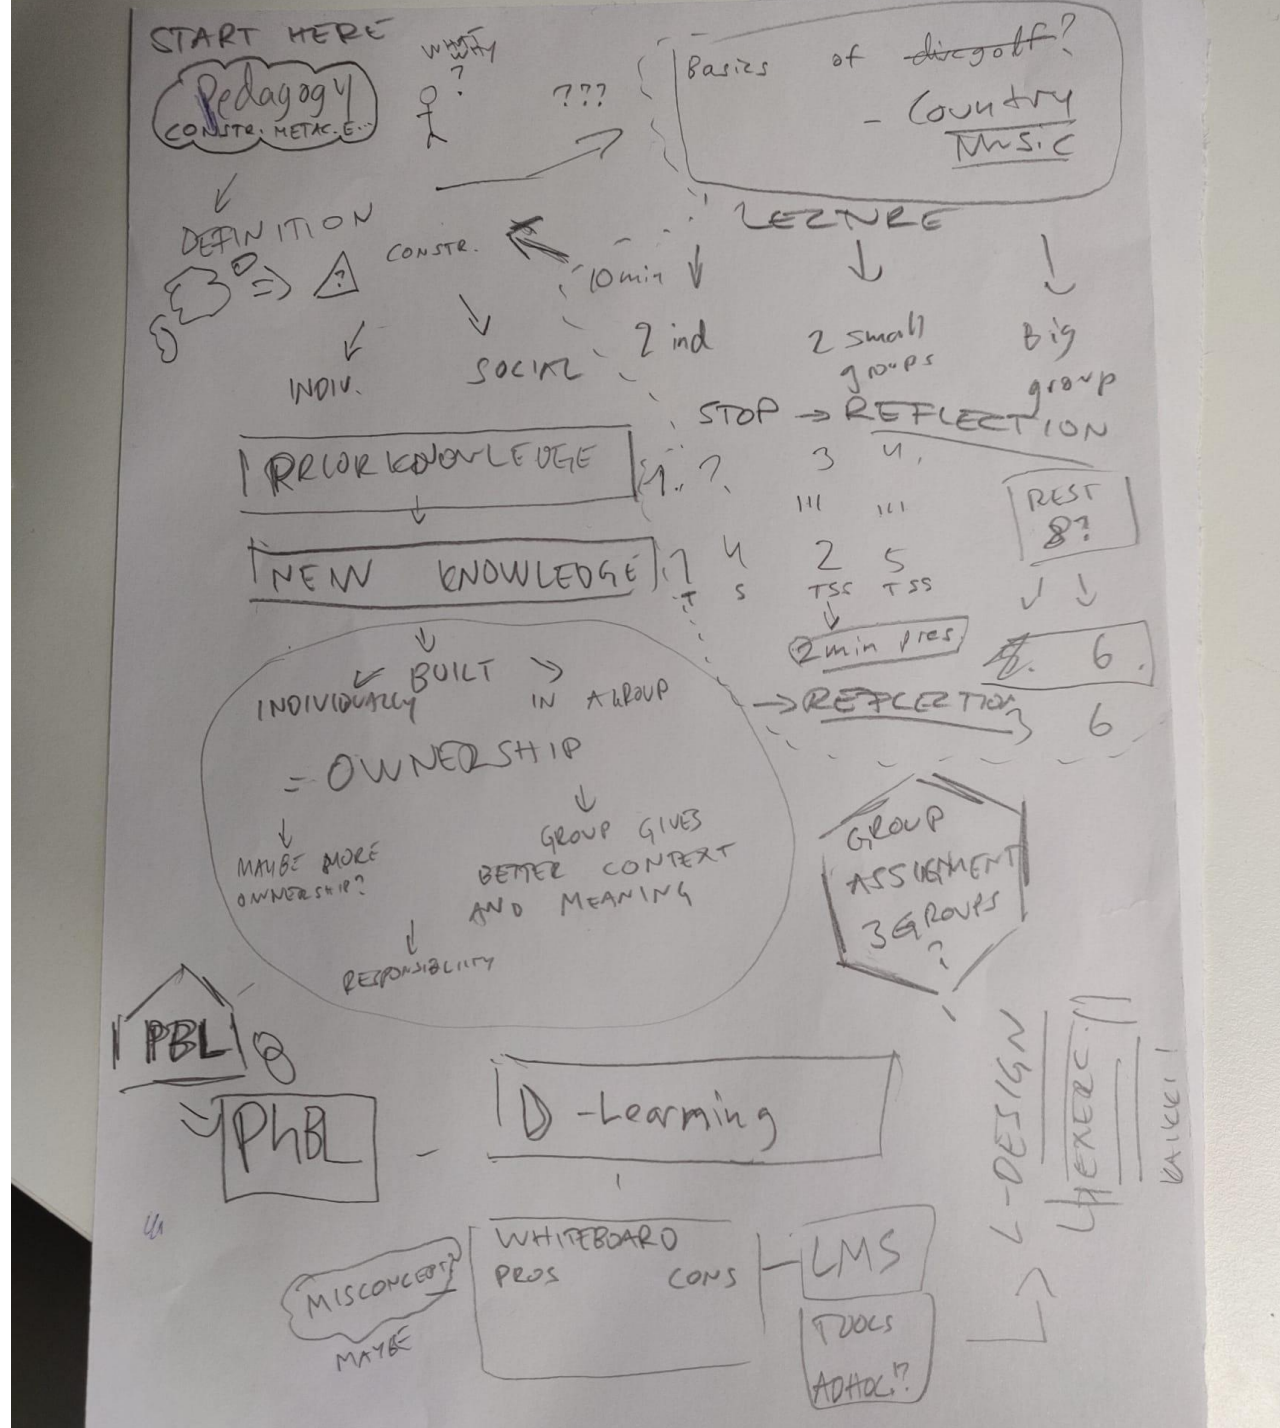 START HERE
Pedagogy
CONSTR. METAC. E...
WHAT
WHY
?
???
Basics of discgolf?
- Country
Music
DEFINITION
?
CONSTR.
INDIV.
SOCIAL
LECTURE
10 min
2 ind
2 small
groups
Big
group
STOP → REFLECTION
PRIOR KNOWLEDGE
1. ? 3 4.
REST
8?
NEW KNOWLEDGE
1 4 2 5
T S TSS TSS
2 min pres.
6.
→ REFLECTION
3 6
BUILT
INDIVIDUALLY
IN A GROUP
= OWNERSHIP
MAYBE MORE
OWNERSHIP?
GROUP GIVES
BETTER CONTEXT
AND MEANING
RESPONSIBLIITY
GROUP
ASSIGNMENT
3 GROUPS
?
PBL
PhBL
-
D-Learning
L-DESIGN
EXERC.
KAIKKI!
MISCONCEPT?
MAYBE
WHITEBOARD
PROS CONS
LMS
TOOLS
ADHOC!?